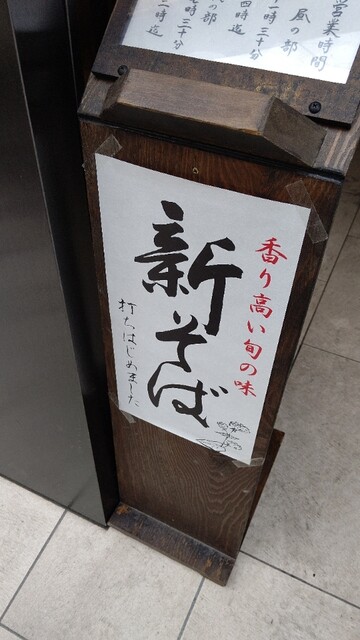 営業時間
昼の部
十一時三十分
四時迄
の部
七時三十分
二時迄
香り高い旬の味
新そば
打ちはじめました